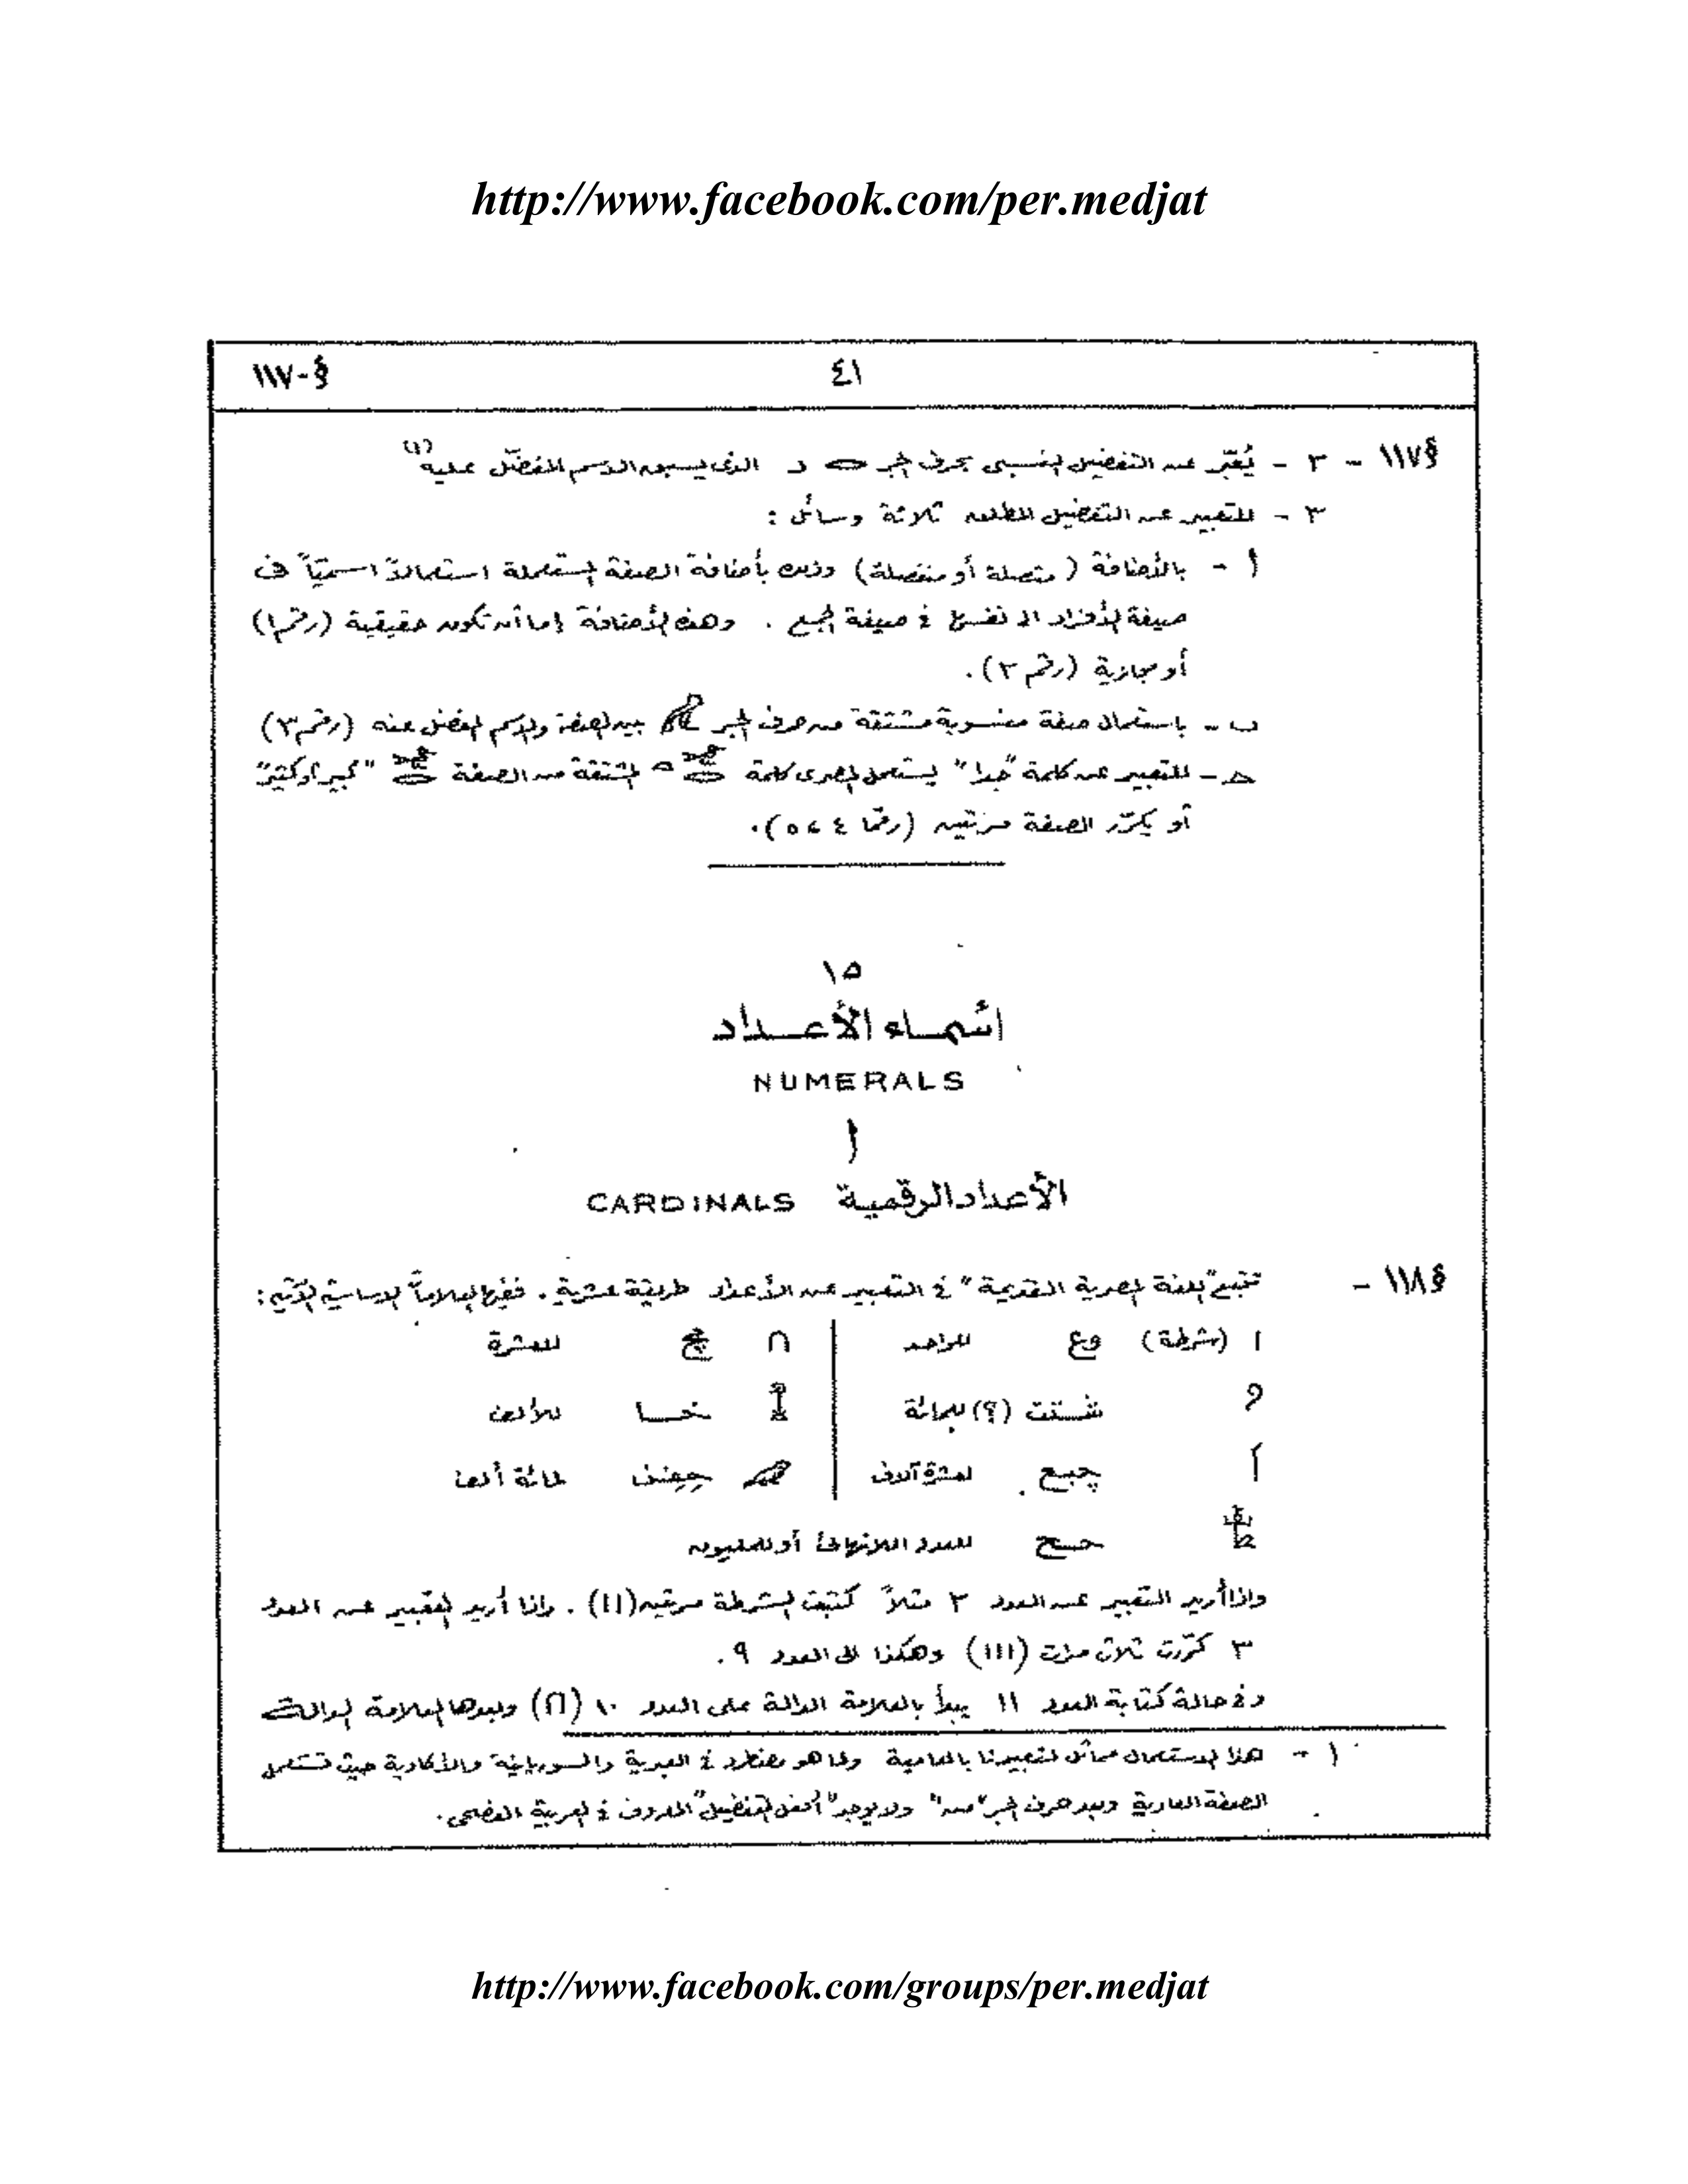 http://www.facebook.com/per.medjat
§-١١٧
٤١
§١١٧ - ٢ - يُعَبّر عن التفضيل النسبى بحرف الجر ر الذى يسبق الاسم المفضّل عليه (١)
٣ - للتعبير عن التفضيل المطلق ثلاثة وسائل :
أ - بالأضافة ( متصلة أو منفصلة) وذلك بأضافة الصفة المستعملة استعمالاً اسميّاً فى
صيغة الأفراد الى نفسها فى صيغة الجمع . وهذه الأضافة إما أن تكون حقيقية (رقم ١)
أو مجازية (رقم ٢).
ب - باستعمال صفة منسوبة مشتقة من حرف الجر بين الصفة والاسم المفضل عنه (رقم ٣)
حـ - للتعبير عن كلمة "جدا" يستعمل المصرى كلمة المشتقة من الصفة "كبير أو كثير"
أو يكرّر الصفة مرتين (رقما ٤ ، ٥).
١٥
أسماء الأعداد
NUMERALS
أ
الأعداد الرقمية CARDINALS
§١١٨ - تتبع "اللغة المصرية القديمة" فى التعبير عن الأعداد طريقة عشرية . ففيها العلامات الاساسية الآتية :
١ (شرطة) وع للواحد ∩ مج للعشرة
شنت (؟) للمائة خا للألف
جبع لعشرة آلاف حفن لمائة ألف
حح للعدد اللانهائى أو للمليون
واذا أريد التعبير عن العدد ٢ مثلاً كتبت الشرطة مرتين (١١) . واذا أريد التعبير عن العدد
٣ كرّرت ثلاث مرات (١١١) وهكذا الى العدد ٩ .
وفى حالة كتابة العدد ١١ يبدأ بالعلامة الدالة على العدد ١٠ (∩) وبعدها العلامة الدالة
١ - هذا الاستعمال مماثل لتعبيرنا بالعامية ولما هو مضطرد فى العبرية والسوريانية والأكادية حيث تستعمل
الصفة العادية وبعد حرف الجر "من" ولا يوجد "أفعل التفضيل" المعروف فى العربية الفصحى .
http://www.facebook.com/groups/per.medjat